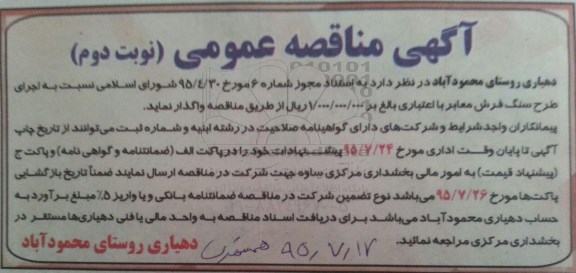 آگهی مناقصه عمومی (نوبت دوم)
دهیاری روستای محمودآباد در نظر دارد به استناد مجوز شماره ۶ مورخ ۹۵/۴/۳۰ شورای اسلامی نسبت به اجرای
طرح سنگ فرش معابر با اعتباری بالغ بر ۱/۰۰۰/۰۰۰/۰۰۰ ریال از طریق مناقصه واگذار نماید.
پیمانکاران واجد شرایط و شرکت‌های دارای گواهینامه صلاحیت در رشته ابنیه و شماره ثبت می‌توانند از تاریخ چاپ
آگهی تا پایان وقت اداری مورخ ۹۵/۷/۲۴ پیشنهادات خود را در پاکت الف (ضمانتنامه و گواهی نامه) و پاکت ج
(پیشنهاد قیمت) به امور مالی بخشداری مرکزی ساوه جهت شرکت در مناقصه ارسال نمایند ضمناً تاریخ بازگشایی
پاکت‌ها مورخ ۹۵/۷/۲۶ می‌باشد نوع تضمین شرکت در مناقصه ضمانتنامه بانکی و یا واریز ۵٪ مبلغ برآورد به
حساب دهیاری محمودآباد می‌باشد برای دریافت اسناد مناقصه به واحد مالی یا فنی دهیاری‌ها مستقر در
بخشداری مرکزی مراجعه نمائید.
دهیاری روستای محمودآباد
۹۵/۷/۱۷